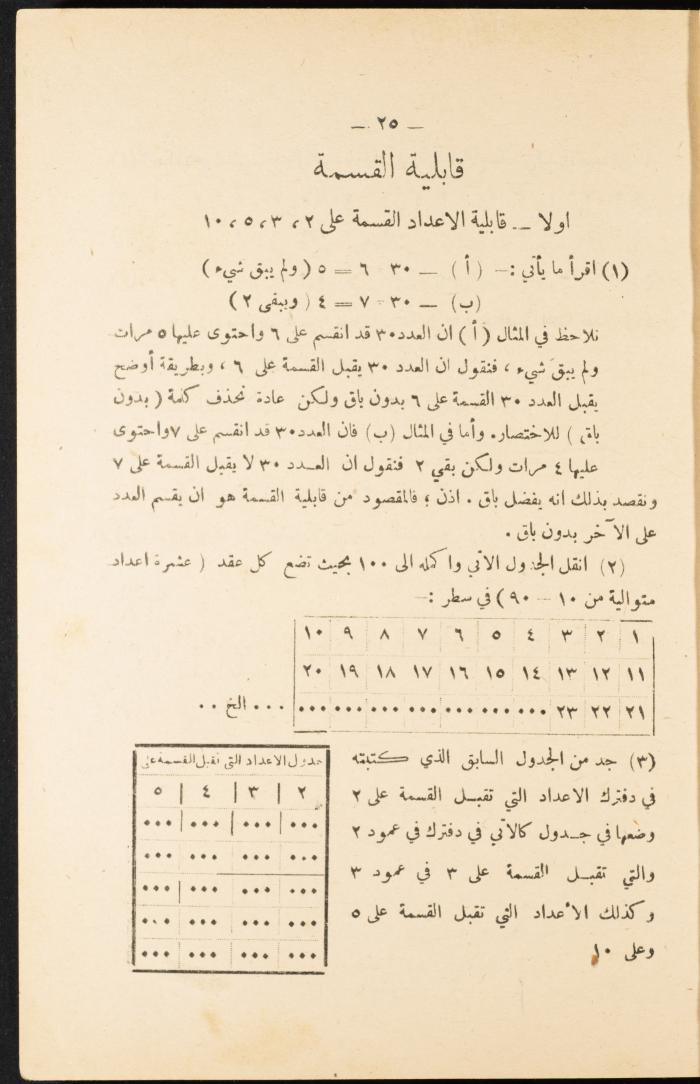 — ٢٥ —
قابلية القسمة
اولا — قابلية الاعداد القسمة على ٢ ، ٣ ، ٥ ، ١٠
(١) اقرأ ما يأتي :— ( أ ) — ٣٠ ÷ ٦ = ٥ ( ولم يبق شيء )
(ب) — ٣٠ ÷ ٧ = ٤ ( ويبقى ٢ )
نلاحظ في المثال ( أ ) ان العدد ٣٠ قد انقسم على ٦ واحتوى عليها ٥ مرات
ولم يبقَ شيء ، فنقول ان العدد ٣٠ يقبل القسمة على ٦ ، وبطريقة أوضح
يقبل العدد ٣٠ القسمة على ٦ بدون باق ولكن عادة نحذف كلمة ( بدون
باق ) للاختصار. وأما في المثال (ب) فان العدد ٣٠ قد انقسم على ٧ واحتوى
عليها ٤ مرات ولكن بقي ٢ فنقول ان العـدد ٣٠ لا يقبل القسمة على ٧
ونقصد بذلك انه يفضل باق . اذن ؛ فالمقصود من قابلية القسمة هو ان يقسم العدد
على الآخر بدون باق .
(٢) انقل الجدول الاتي واكمله الى ١٠٠ بحيث تضع كل عقد ( عشرة اعداد
متوالية من ١٠ — ٩٠ ) في سطر :—
١ ٢ ٣ ٤ ٥ ٦ ٧ ٨ ٩ ١٠
١١ ١٢ ١٣ ١٤ ١٥ ١٦ ١٧ ١٨ ١٩ ٢٠
٢١ ٢٢ ٢٣ ... ... ... ... ... ... ... ... الخ ..
(٣) جد من الجدول السابق الذي كتبته
في دفترك الاعداد التي تقبـل القسمة على ٢
وضعها في جـدول كالآتي في دفترك في عمود ٢
والتي تقبـل القسمة على ٣ في عمود ٣
وكذلك الأعداد التي تقبل القسمة على ٥
وعلى ١٠
جدول الاعداد التي تقبل القسمة على
٢ | ٣ | ٤ | ٥
... | ... | ... | ...
... ... ... ...
... ... ... ...
... ... ... ...
... ... ... ...